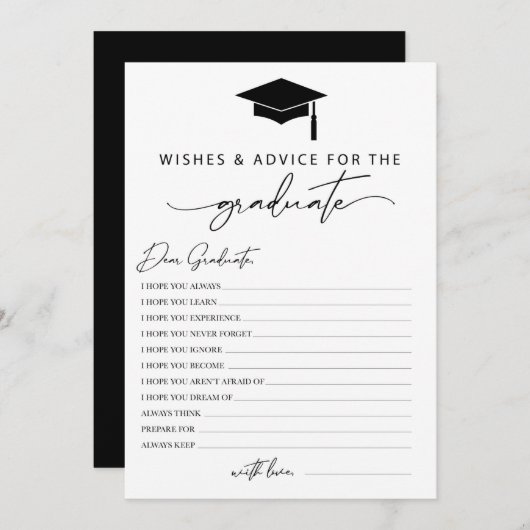 WISHES & ADVICE FOR THE
graduate
Dear Graduate,
I HOPE YOU ALWAYS
I HOPE YOU LEARN
I HOPE YOU EXPERIENCE
I HOPE YOU NEVER FORGET
I HOPE YOU IGNORE
I HOPE YOU BECOME
I HOPE YOU AREN'T AFRAID OF
I HOPE YOU DREAM OF
ALWAYS THINK
PREPARE FOR
ALWAYS KEEP
with love,